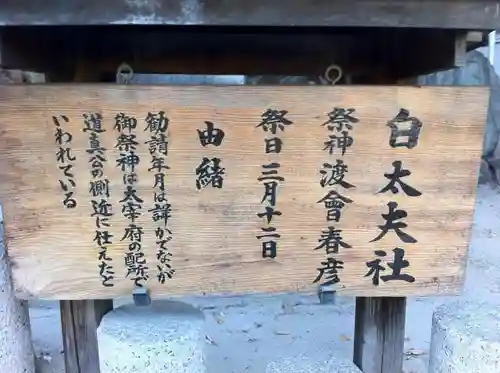 白太夫社
祭神 渡會春彦
祭日 三月十二日
由緒
勧請年月は詳かでないが
御祭神は太宰府の配所で
道真公の側近に仕えたと
いわれている